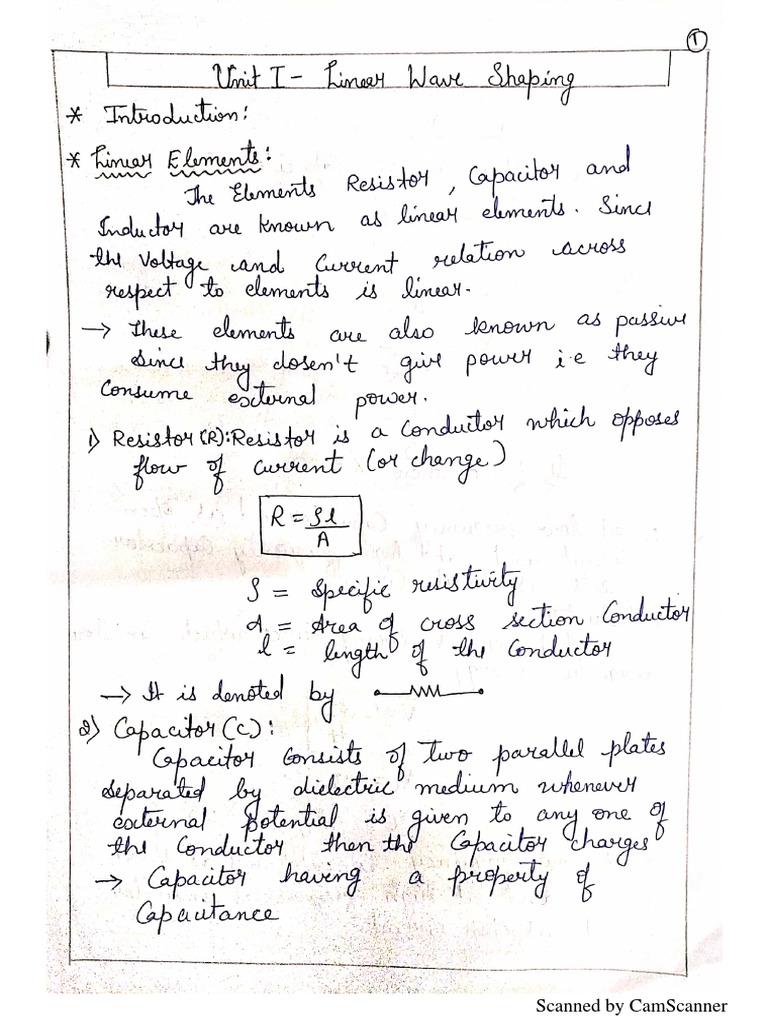 1
Unit I - Linear Wave Shaping
* Introduction:
* Linear Elements:
The Elements Resistor, Capacitor and
Inductor are known as linear elements. Since
the Voltage and Current relation across
respect to elements is linear.
→ These elements are also known as passive
since they dosen't give power i.e they
Consume external power.
1) Resistor(R): Resistor is a Conductor which opposes
flow of current (or change)
R = ρl
A
ρ = Specific resistivity
A = Area of cross section Conductor
l = length of the Conductor
→ It is denoted by
2) Capacitor(C):
Capacitor Consists of two parallel plates
separated by dielectric medium whenever
external potential is given to any one of
the Conductor then the Capacitor charges
→ Capacitor having a property of
Capacitance
Scanned by CamScanner